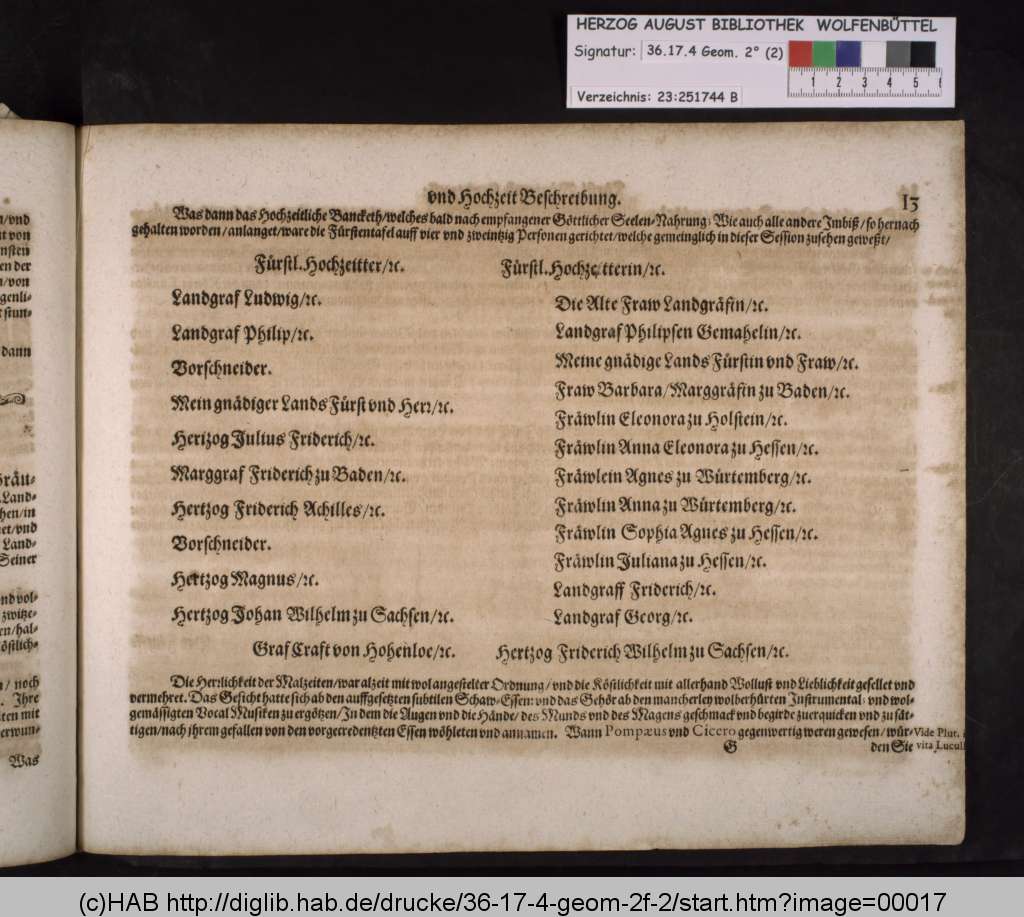 HERZOG AUGUST BIBLIOTHEK WOLFENBÜTTEL
Signatur: 36.17.4 Geom. 2° (2)
1 2 3 4 5
Verzeichnis: 23:251744 B
n/vnd
von
nsten
en der
n/von
genli-
stun-
dann
Land-
hen/in
et/vnd
Land-
Seiner
nd vol-
zwitze-
en/hal-
östlich-
noch
Ihre
ten mit
erwun-
Was
vnd Hochzeit Beschreibung. 13
Was dann das Hochzeitliche Bancketh/welches bald nach empfangener Göttlicher Seelen-Nahrung/ Wie auch alle andere Imbiß/ so hernach
gehalten worden/anlanget/ware die Fürstentafel auff vier vnd zweintzig Personen gerichtet/welche gemeinglich in dieser Session zusehen geweßt/
Fürstl. Hochzeitter/ꝛc. Fürstl. Hochzeitterin/ꝛc.
Landgraf Ludwig/ꝛc.
Landgraf Philip/ꝛc.
Vorschneider.
Mein gnädiger Lands Fürst vnd Herr/ꝛc.
Hertzog Julius Friderich/ꝛc.
Marggraf Friderich zu Baden/ꝛc.
Hertzog Friderich Achilles/ꝛc.
Vorschneider.
Hertzog Magnus/ꝛc.
Hertzog Johan Wilhelm zu Sachsen/ꝛc.
Die Alte Fraw Landgräfin/ꝛc.
Landgraf Philipsen Gemahelin/ꝛc.
Meine gnädige Lands Fürstin vnd Fraw/ꝛc.
Fraw Barbara/Marggräfin zu Baden/ꝛc.
Fräwlin Eleonora zu Holstein/ꝛc.
Fräwlin Anna Eleonora zu Hessen/ꝛc.
Fräwlein Agnes zu Würtemberg/ꝛc.
Fräwlin Anna zu Würtemberg/ꝛc.
Fräwlin Sophia Agnes zu Hessen/ꝛc.
Fräwlin Juliana zu Hessen/ꝛc.
Landgraff Friderich/ꝛc.
Landgraf Georg/ꝛc.
Graf Craft von Hohenloe/ꝛc. Hertzog Friderich Wilhelm zu Sachsen/ꝛc.
Die Herrlichkeit der Malzeiten/war alzeit mit wol angestelter Ordnung/ vnd die Köstlichkeit mit allerhand Wollust vnd Lieblichkeit gesellet vnd
vermehret. Das Gesicht hatte sich ab den auffgesetzten subtilen Schaw-Essen: vnd das Gehör ab den mancherley wolberhürten Instrumental: vnd wol-
gemässigten Vocal Musiken zu ergötzen/In dem die Augen vnd die Hände/ des Munds vnd des Magens geschmack vnd begirde zuerquicken vnd zu sät-
tigen/nach ihrem gefallen von den vorgecredentzten Essen wöhleten vnd annamen. Wann Pompæus vnd Cicero gegenwertig weren gewesen/ wür-
G den Sie
Vide Plut.
vita Lucull
(c)HAB http://diglib.hab.de/drucke/36-17-4-geom-2f-2/start.htm?image=00017